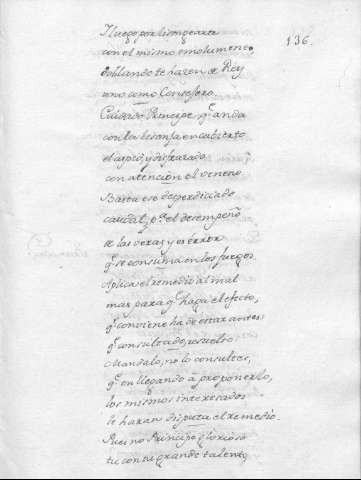 136.
Y luego por lisongearte
con el mismo emolumento,
doblando te hazen de Rey
uno como Consejero.
Cuidado Principe, q.e anda
con la lisonja encubierto
el aspid, y disfrazado
con atencion el veneno.
Basta ese desperdiciado
caudal, p.a el desempeño
de las veras, y es error
q.e se consuma en los juegos.
Aplica el remedio al mal
mas para q.e haga el efecto,
q.e conviene ha de estar antes
q.e consultado, resuelto.
Mandalo, no lo consultes,
q.e en llegando â proponerlo,
los mismos interesados
le haran disputa el remedio.
Pues no Principe glorioso
tu con tu grande talento,